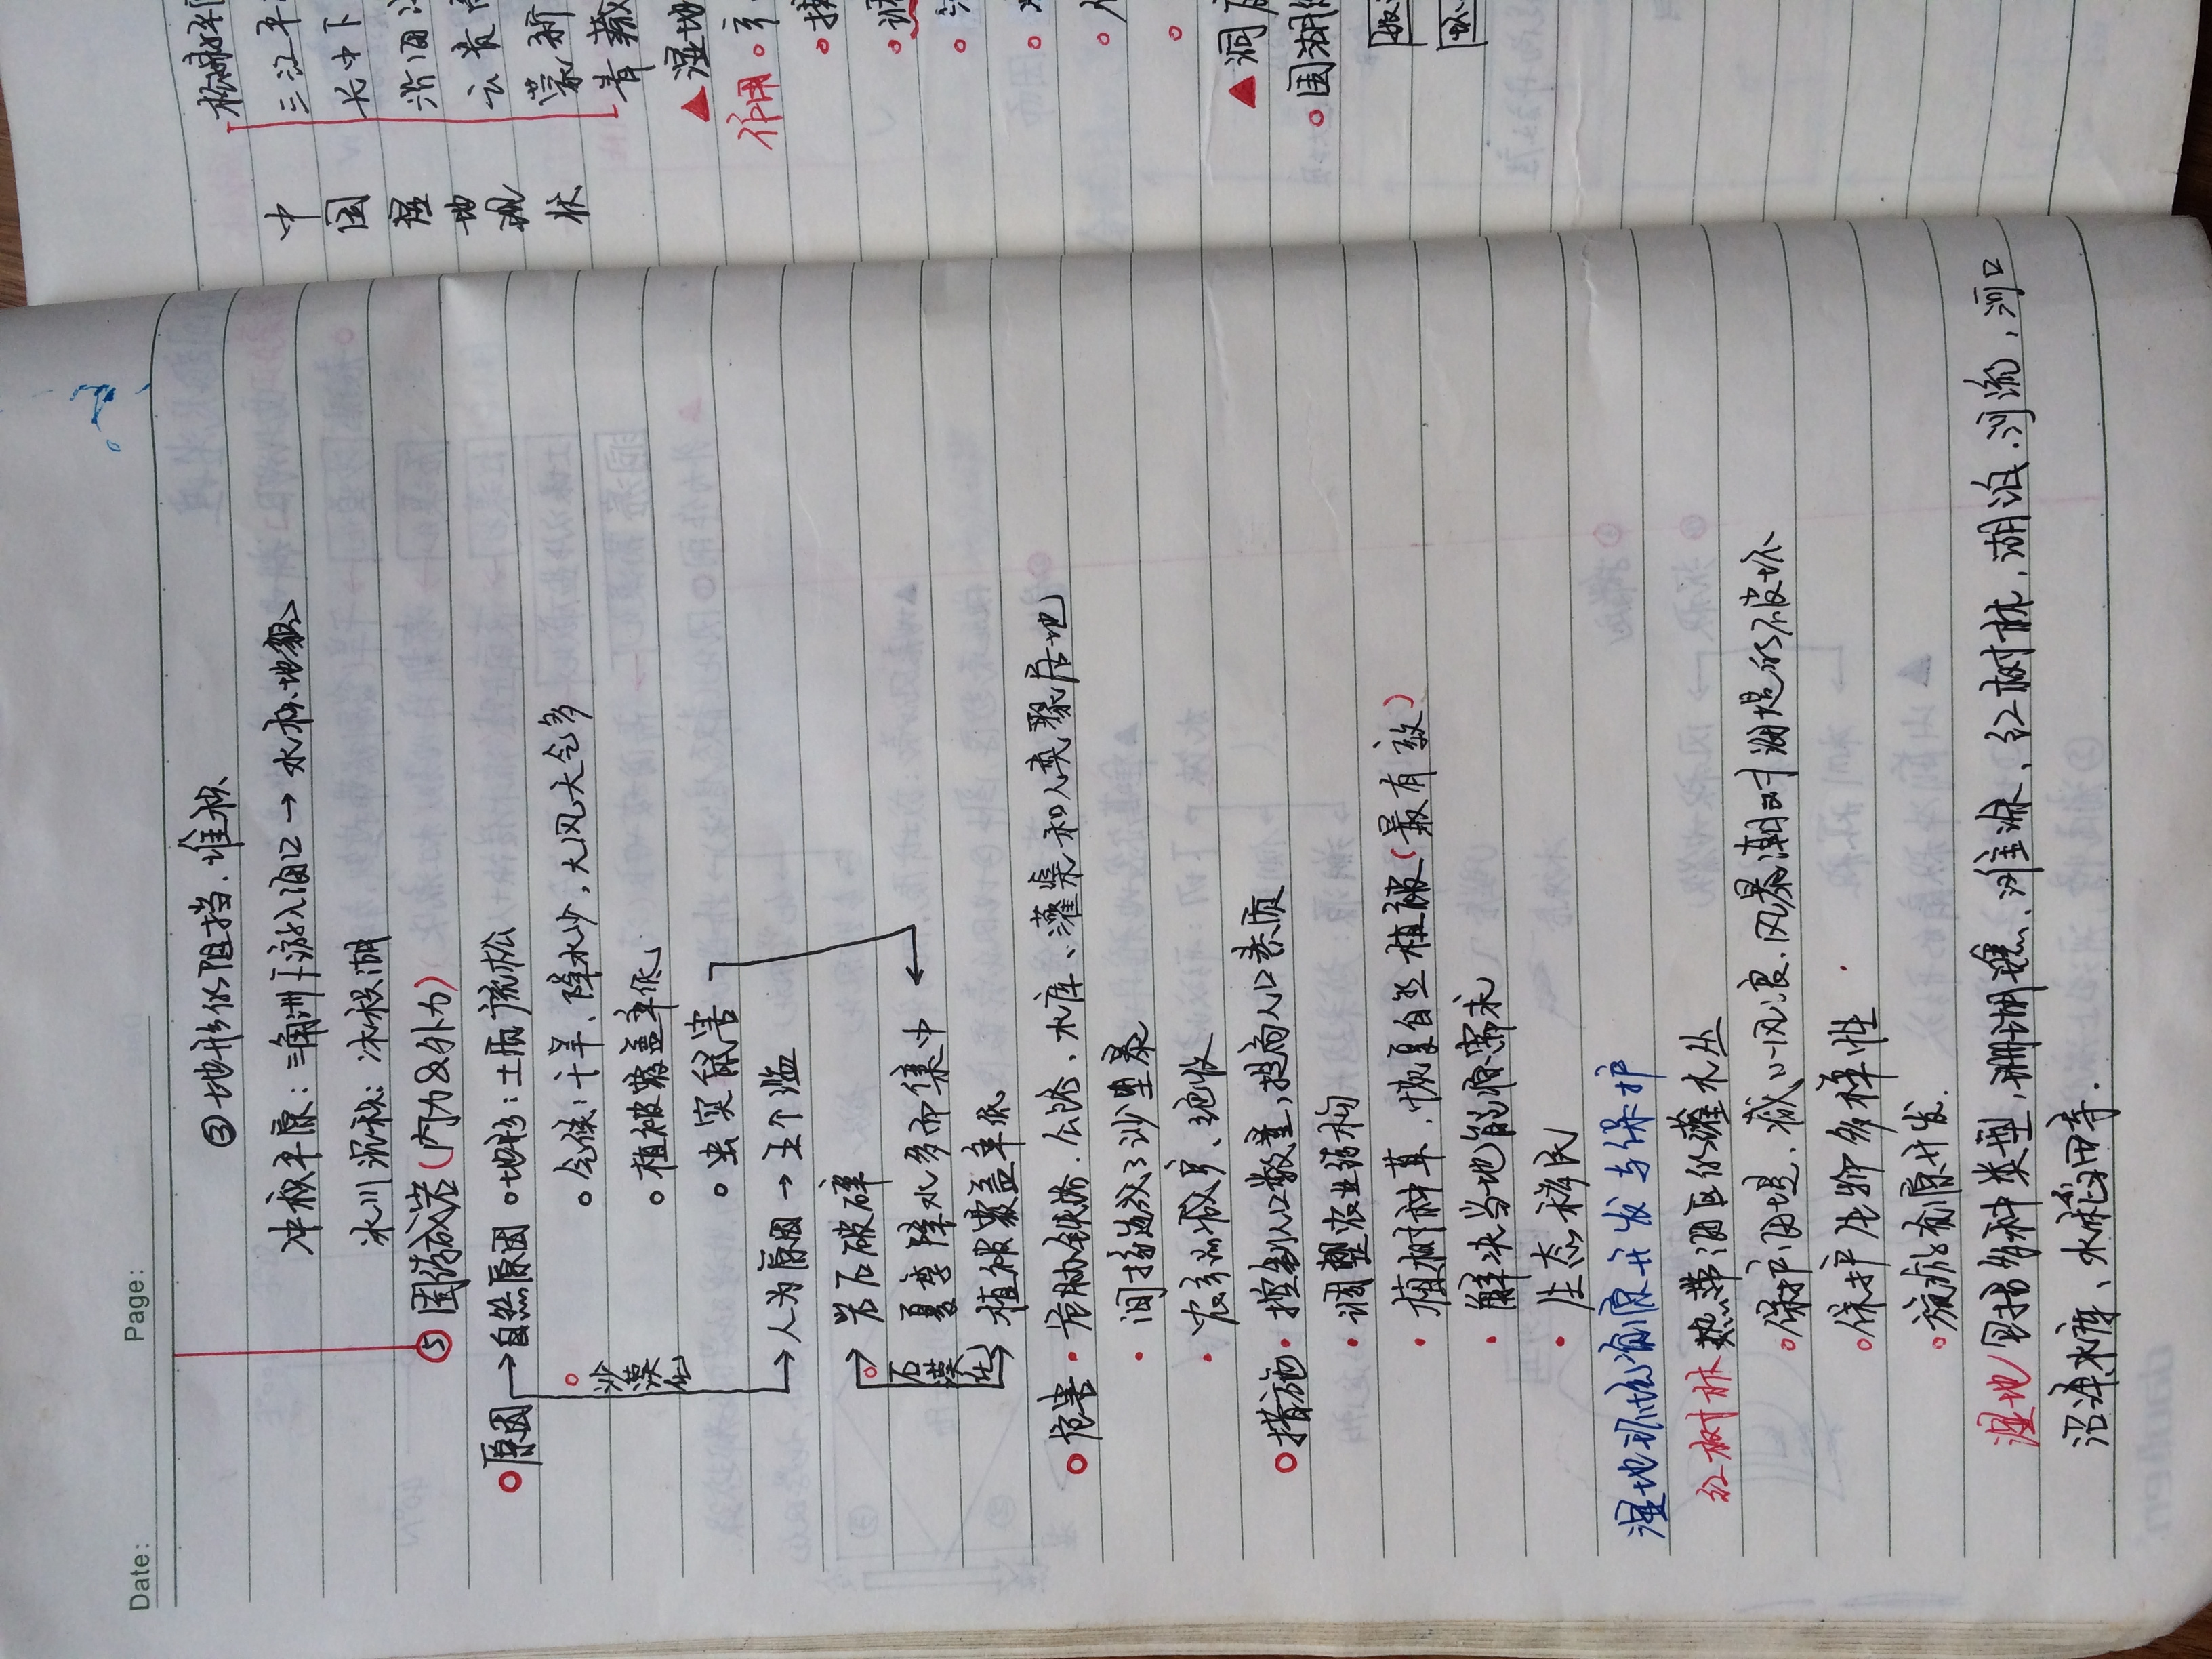 Date: Page:
③地形的阻挡、堆积
冲积平原：三角洲下游入海口→水积地貌
冰川沉积：冰碛湖
⑤固结成岩（内力&外力）
原因→自然原因 地形：土质疏松
气候：干旱、降水少，大风天气多
沙漠化
植被覆盖率低
虫灾鼠害
→人为原因→五个滥
→岩石破碎
石漠化
夏季降水多而集中←
→植被覆盖率低
危害·危胁铁路、公路、水库、灌渠和人类聚居地
·间接造成了沙尘暴
·农产品减产、绝收
措施·控制人口数量，提高人口素质
·调整农业结构
·植树种草，恢复自然植被（最有效）
·解决当地能源需求
·生态移民
湿地环境资源开发与保护
红树林 热带海区的灌木丛
保护海堤，减小风浪、风暴潮对海堤的破坏
保护生物多样性
旅游资源开发.
湿地 包括多种类型，珊瑚礁、滩涂、红树林，湖泊、河流，河口
沼泽水库、水稻田等.
三江平
长中下
沿海
云贵高
蒙新
青藏
中国湿地现状
▲湿地
作用
▲洞庭
围湖